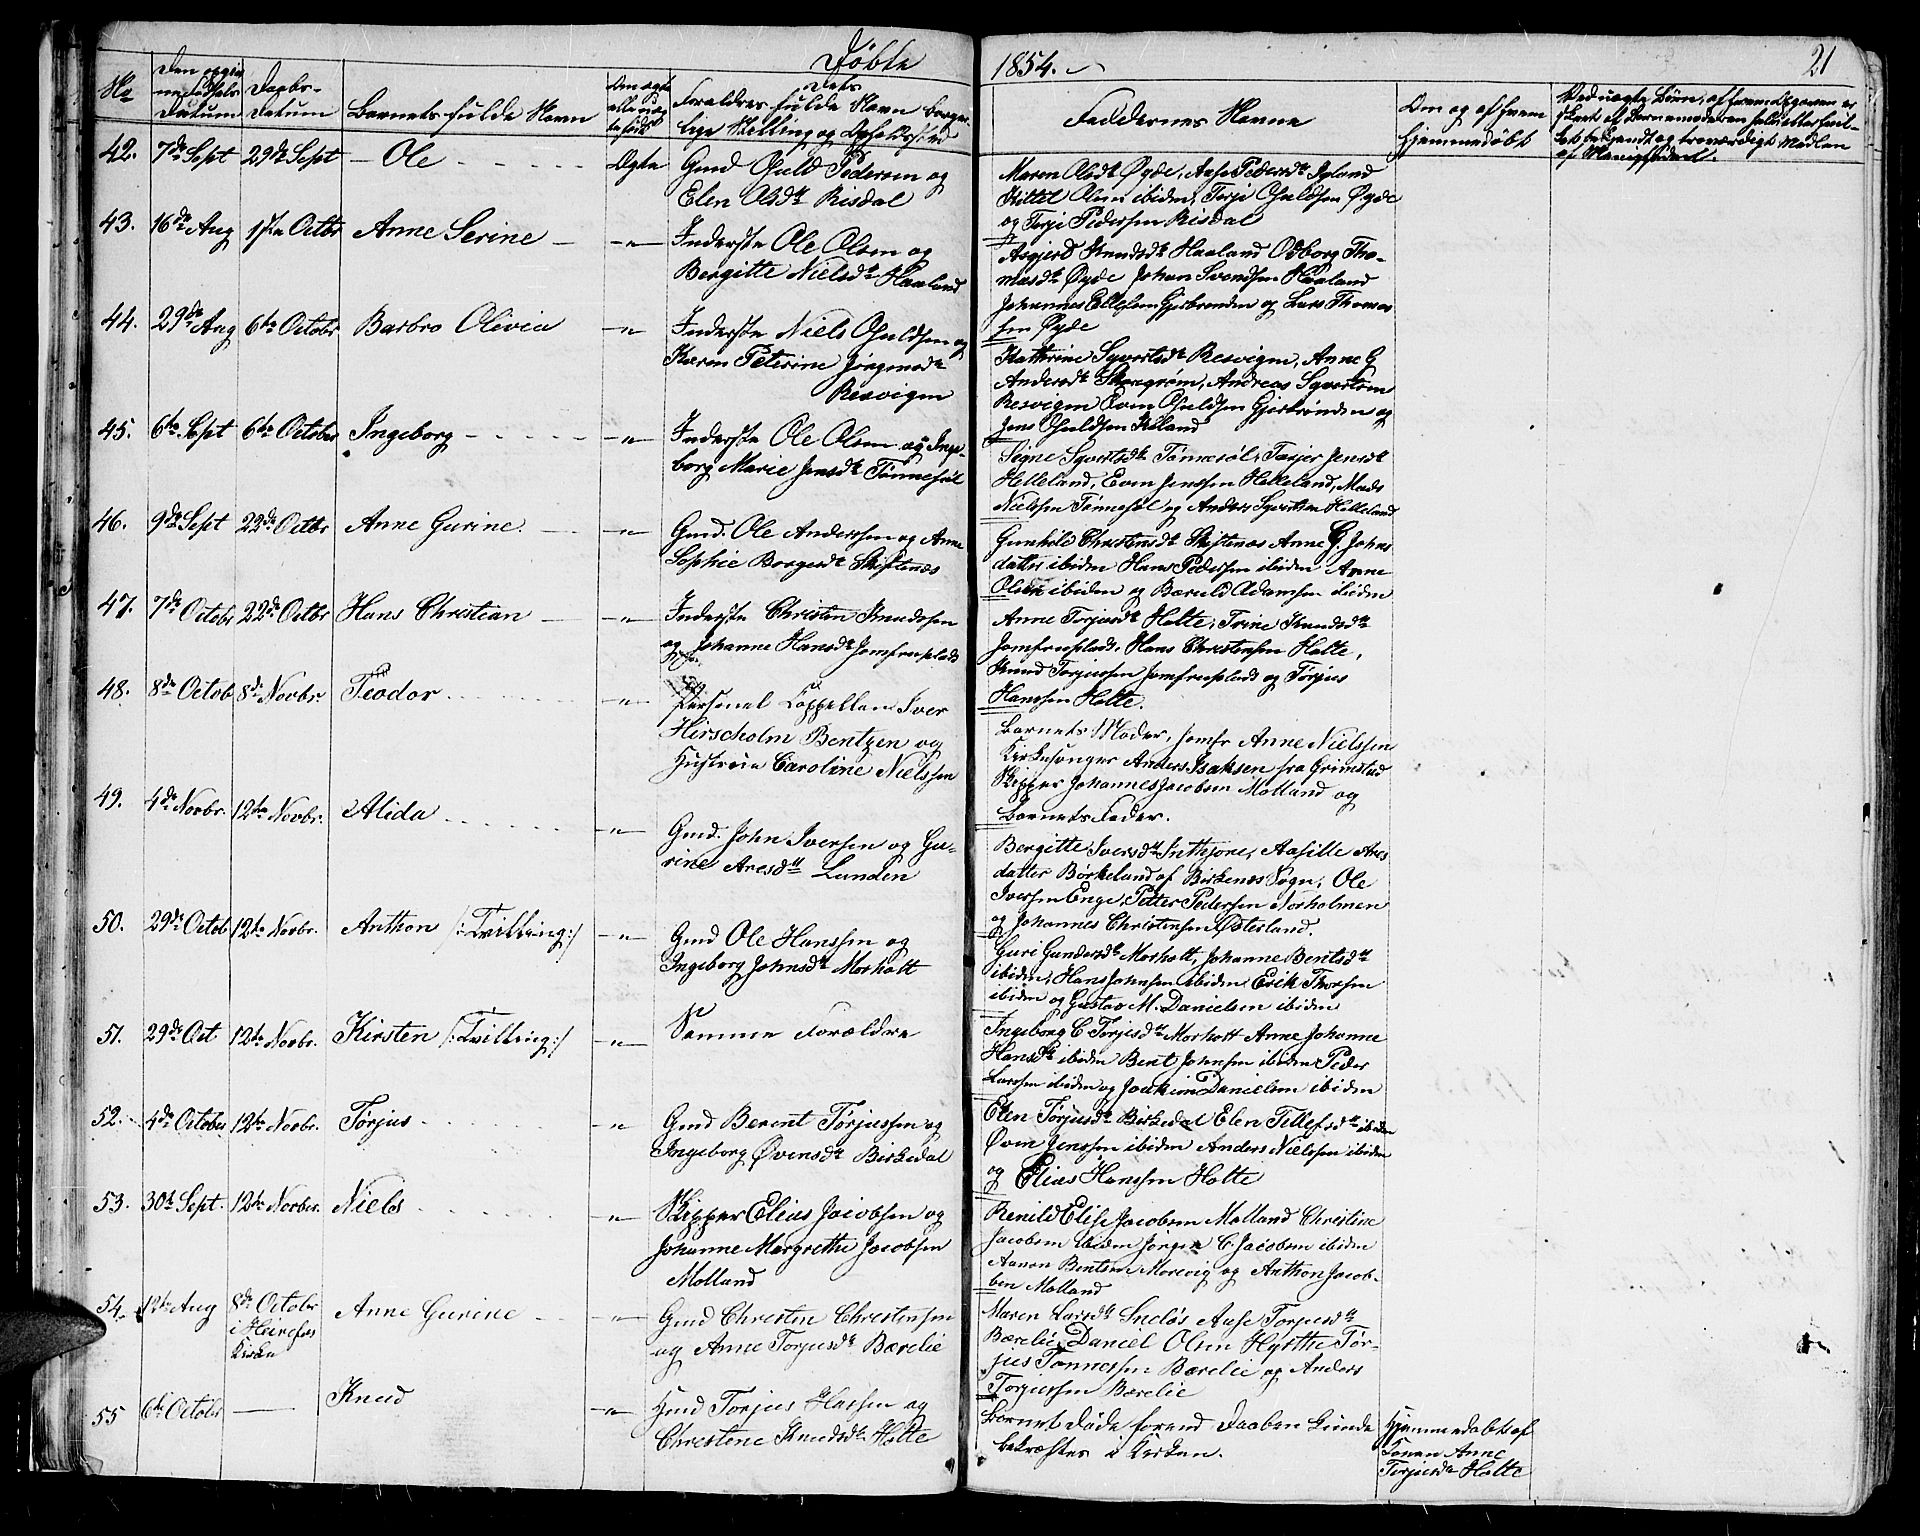 Døbte
1854.
21
No
Den opgivne Fødsels Datum
Daabs-Datum
Barnets fulde Navn
Om ægte eller uægte født
Forældres fulde Navn, borgerlige Stilling og Opholdssted
Faddernes Navne
Om og af hvem hjemmedøbt
42. 7de Sept 29de Sept Ole Ægte
Gmd Osuld Pedersen og
Elen Olsdtr Risdal
Maren Olsdtr Øyde, Aase Pedersdtr
Olsen ibiden, Torje Osuldsen Øyde
og Torje Pedersen Risdal
43. 16de Aug 1ste Octbr Anne Serine –"–
Inderste Ole Olsen og
Bergitte Nielsdtr Haaland
Asgjerd Knudsdtr Haaland Odborg Tho-
masdtr Øyde Johan Svendsen Haaland
Johannes Ellefsen Gjerbrønden og Lars Thomas
sen Øyde
44. 29de Aug 6te Octobr Barbro Olivia –"–
Inderste Niels Osuldsen og
Karen Peterine Jørgensdtr
Resvigen
Kathrine Syvertsdtr Resvigen, Anne G
Andersdtr, Andreas Syvertsen
Resvigen Even Osuldsen Gjerbrønden og
Jens Osuldsen
45. 6te Sept 6te October Ingeborg –"–
Inderste Ole Olsen og Inge-
borg Marie Jensdtr Tønnesøl
Signe Syvertsdtr Tønnesøl, Jensdtr
Helleland, Even Jenssen Helleland, Mads
Nielssen Tønnesøl og Anders Syvertsen Helleland
46. 9de Sept 22de Octbr Anne Gurine –"–
Gmd. Ole Anderssen og Anne
Sophie Borgersdtr Skiftenæs
Gunhild Christensdtr Skiftenæs Anne G. Johns
datter ibiden Hans Pedersen ibiden Anne
Olsen ibiden og Bærulf Adamsen ibiden
47. 7de Octobr 22de Octbr Hans Christian –"–
Inderste Christen Knudssen
og Johanne Hansdtr Jomfruplads
Anne Torjusdtr Holte, Trine Knudsdtr
Jomfruplads, Hans Christensen Holte,
Knud Torjussen Jomfruplads og Torjus
Hanssen Holte.
48. 8de Octob 8de Novbr. Teodor –"–
Personel Cappellan Iver
Hirscholm Bentzen og
Hustrue Caroline Nielssen
Barnets Moder, Jomfr Anne Nielssen
Kirkesanger Anders Isaksen fra Grimstad
Skipper Johannes Jacobsen Molland og
Barnets Fader.
49. 4de Novbr. 12te Novbr. Alida –"–
Gmd. John Iversen og Gu-
rine Aresdtr Lunden
Bergitte Iversdtr, Aasille Ares
datter Børkeland af Birkenes Sogn, Ole
Iversen Enge, Petter Pedersen Norholmen
og Johannes Christensen Østerland.
50. 29de Octob 12te Novbr. Anthon /:Tvilling:/ –"–
Gmd Ole Hanssen og
Ingeborg Johnsdtr Morholt
Guri Gundersdtr Morholt, Johanne Bentsdtr
ibiden, Hans Johnsen ibiden Erik Thorsen
ibiden og Gustav M. Danielsen ibiden
51. 29de Oct 12te Novbr. Kirsten /:Tvilling:/ –"–
Samme Forældre
Ingeborg C Torjusdtr Morholt Anne Johanne
Hansdtr ibiden Bent Johnsen ibiden Peder
Larssen ibiden og Joakim Danielsen ibiden
52. 4de October 12te Novbr. Tørjus –"–
Gmd Berent Tørjussen og
Ingeborg Øvensdtr Birkedal
Elen Tørjusdtr Birkedal Elen Tellefsdtr ibiden
Øven Jenssen ibiden Anders Nielssen ibiden
og Elias Hanssen Holte
53. 30te Sept. 12te Novber. Niels –"–
Skipper Elias Jacobsen og
Johanne Margrethe Jacobsen
Molland
Renild Elise Jacobsen Molland Christine
Jacobsen ibiden Jørgen C. Jacobsen ibiden
Aanon Bentsen Morevig og Anthon Jacob-
sen Molland
54. 12te Aug 8de Octobr
i Heirefos
Kirke
Anne Gurine –"–
Gmd Christen Christensen
og Anne Torjusdtr Bærelie
Maren Larsdtr Aase Torjusdtr
Bærelie, Daniel Olsen Hyrtte Tør-
jus Tønnessen Bærelie og Anders
Torjussen Bærelie
55 6te Octobr — Knud –"–
Gmd Torjus Hassen og
Christene Knudsdtr Holte
Barnet døde forend Daaben kunde
bekræftes i Kirken.
Hjemmedøbt af
Anne
Torjusdtr Holte